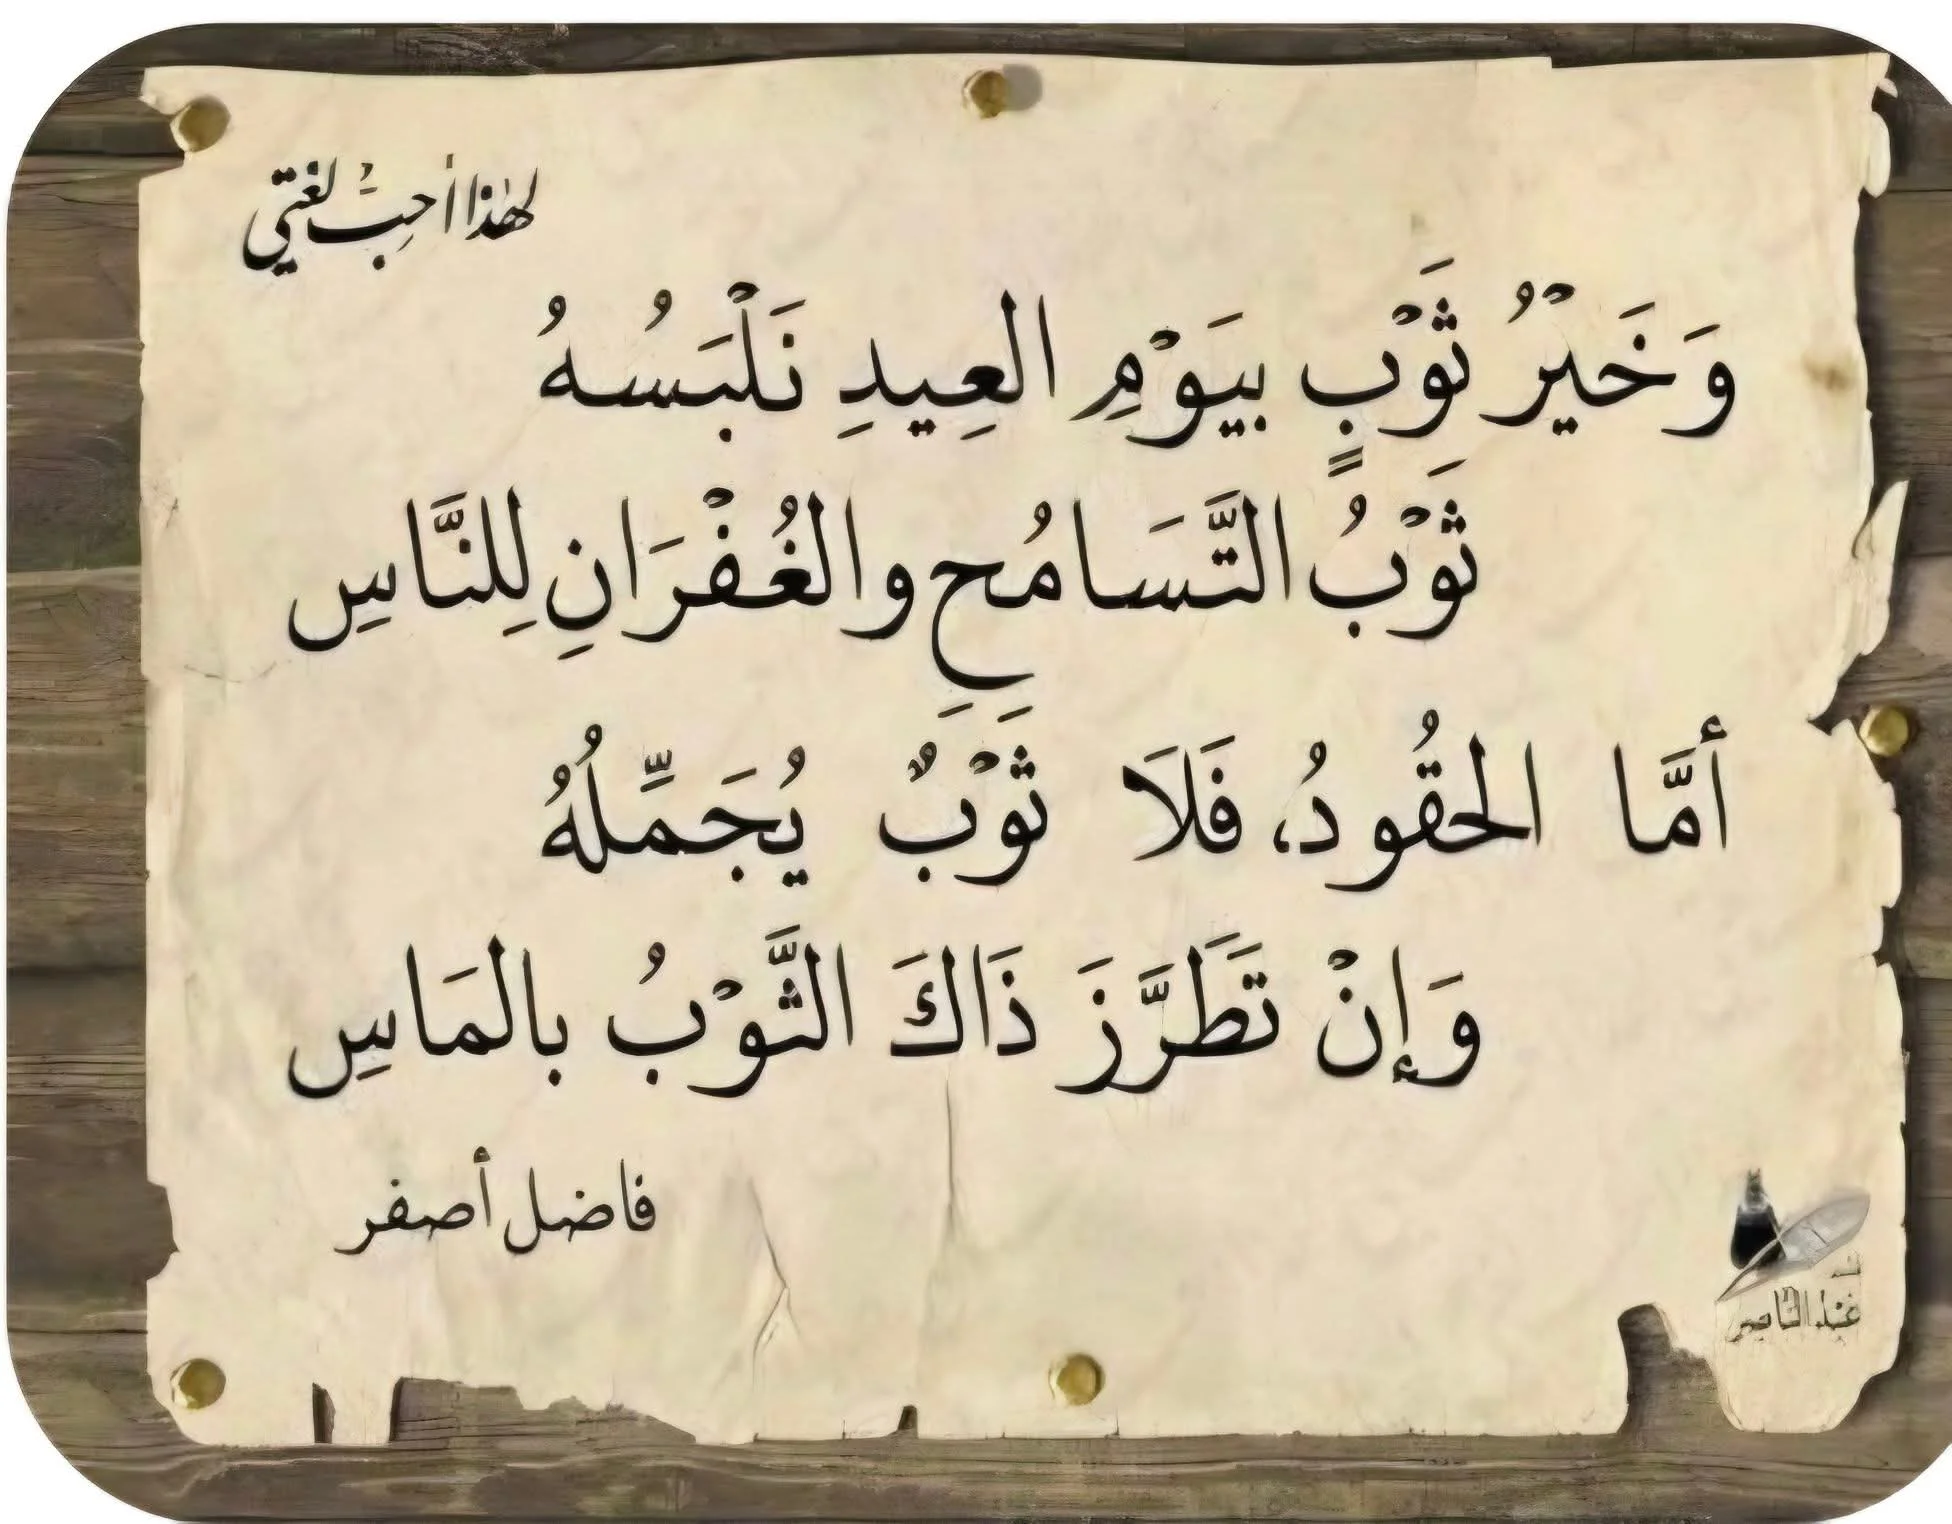 لهذا أحبُّ لغتي
وَخَيْرُ ثَوْبٍ بيَوْمِ العِيدِ نَلْبَسُهُ
ثَوْبُ التَّسَامُحِ والغُفْرَانِ لِلنَّاسِ
أمَّا الحقُودُ، فَلاَ ثَوْبٌ يُجَمِّلُهُ
وَإنْ تَطَرَّزَ ذَاكَ الثَّوْبُ بالمَاسِ
فاضل أصفر
عبد الناصر